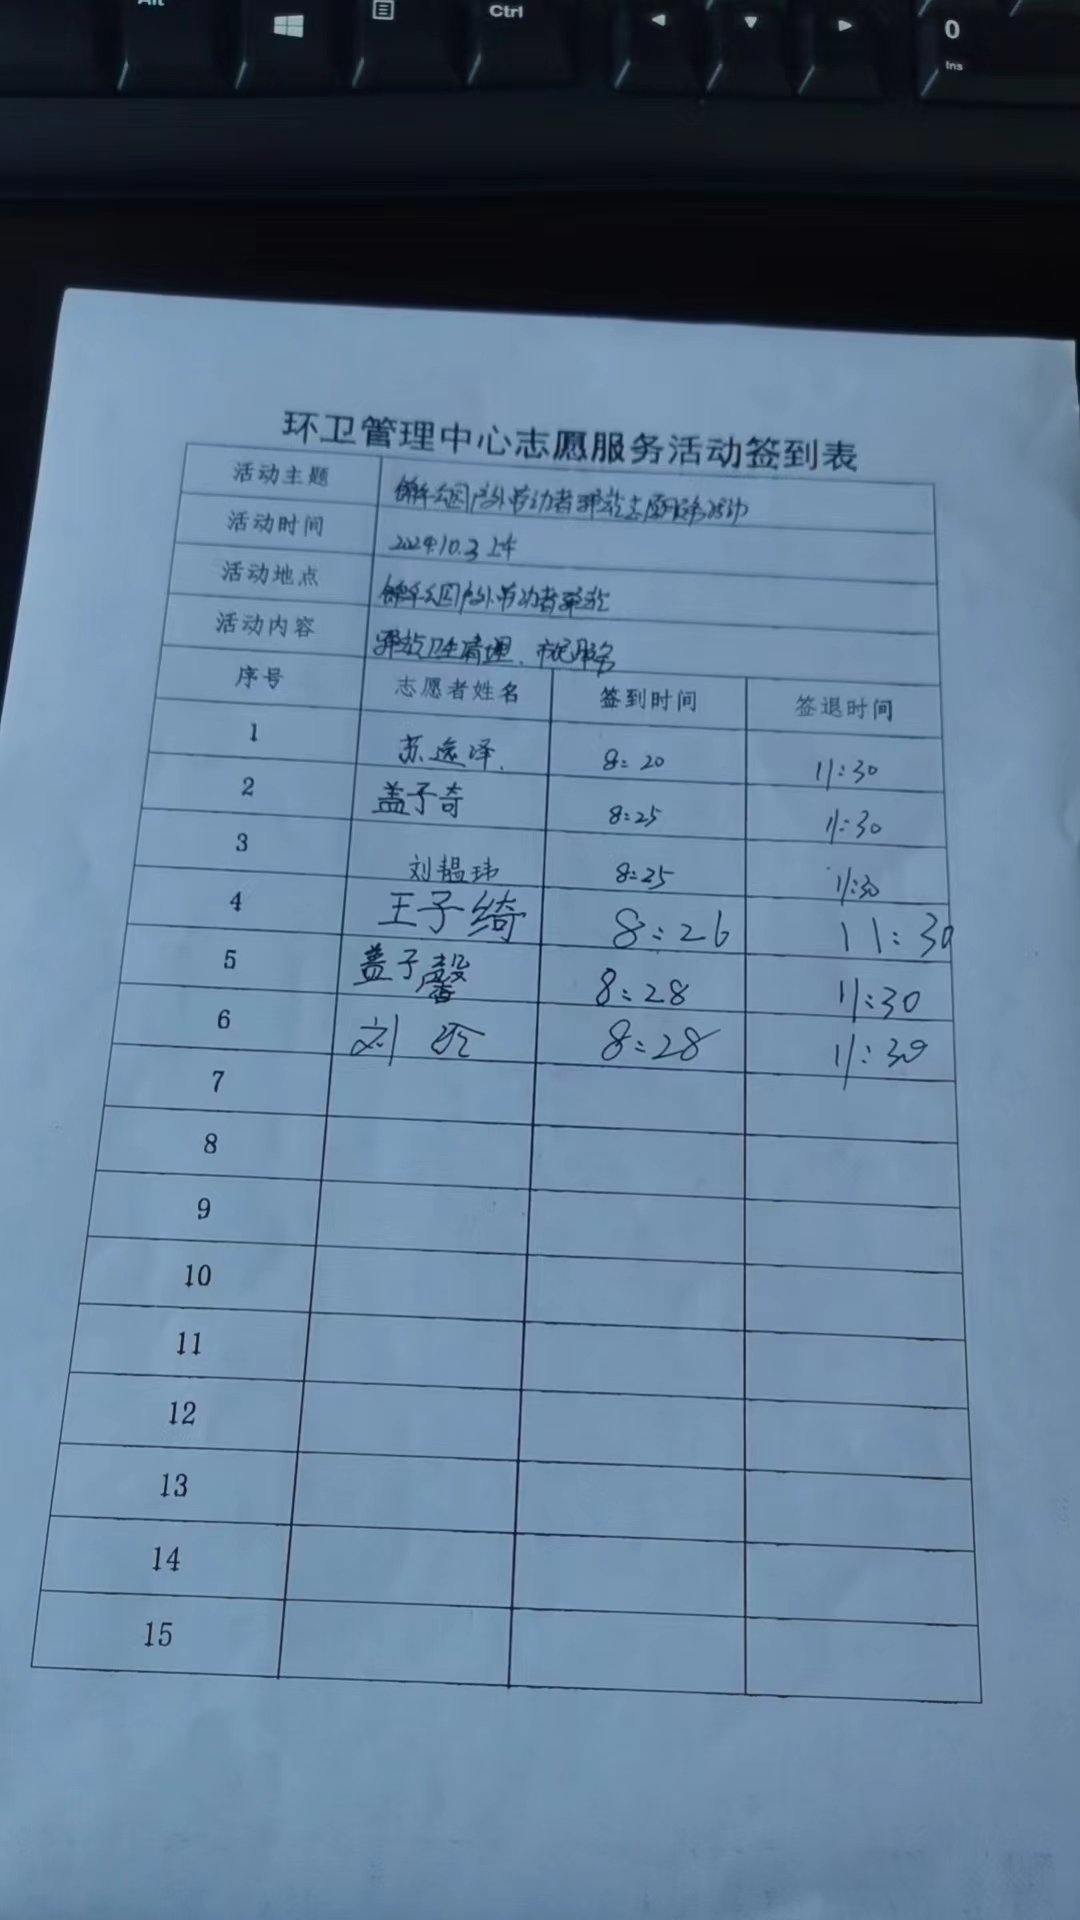 Alt
Ctrl
0
Ins
环卫管理中心志愿服务活动签到表
活动主题 公园户外劳动者驿站志愿服务活动
活动时间 2024.10.3 上午
活动地点 公园户外劳动者驿站
活动内容 驿站卫生清理、市民服务
序号 志愿者姓名 签到时间 签退时间
1 苏逸泽. 8:20 11:30
2 盖子奇 8:25 11:30
3 刘韫玮 8:25 11:30
4 王子绮 8:26 11:30
5 盖子馨 8:28 11:30
6 刘 8:28 11:30
7
8
9
10
11
12
13
14
15